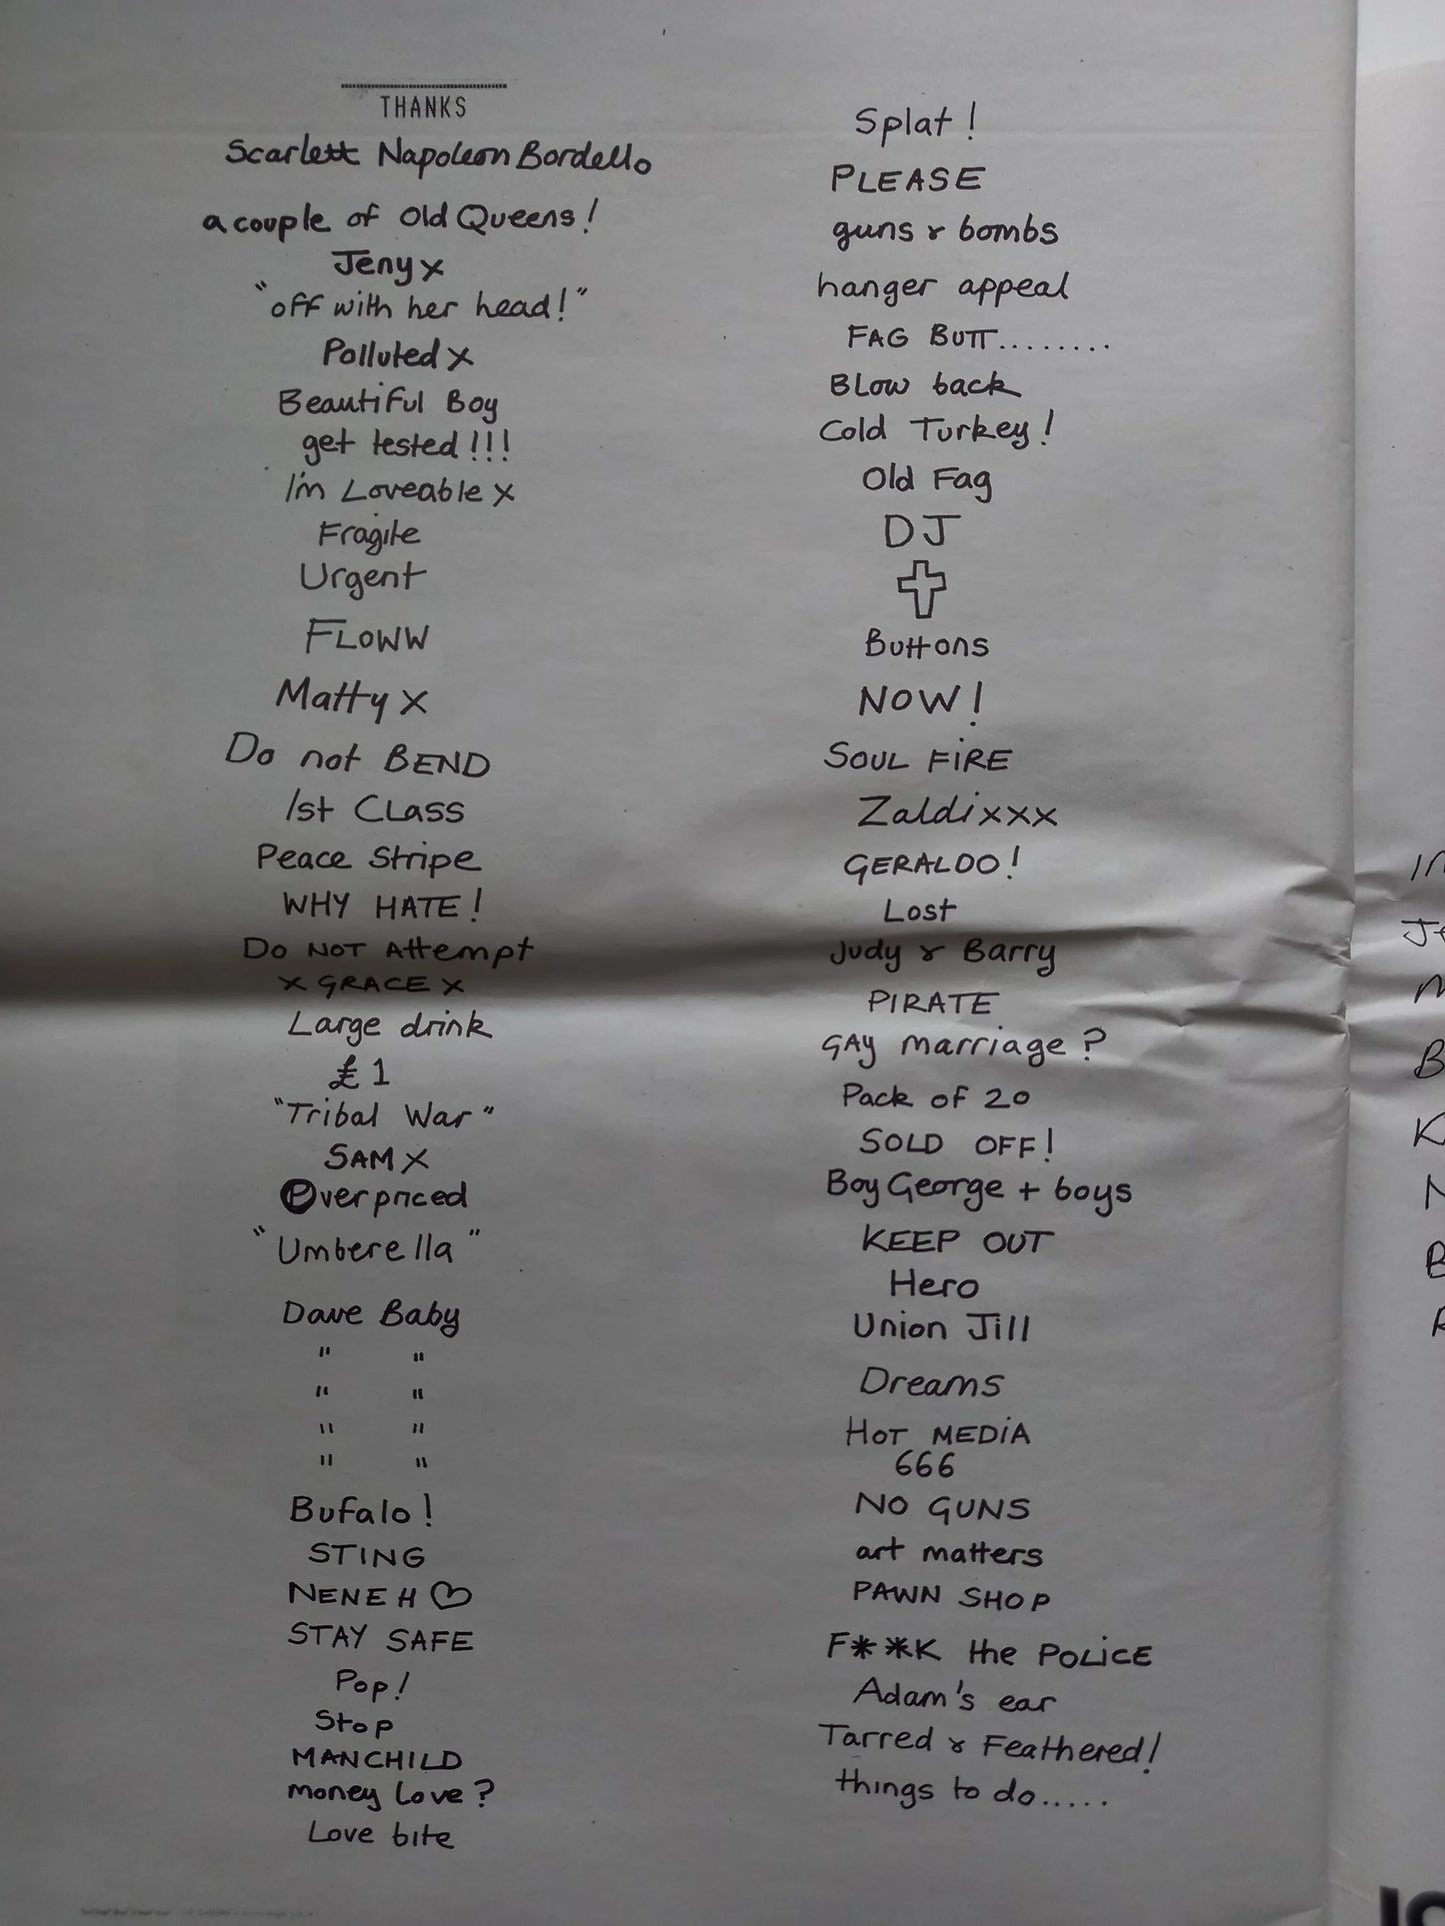 THANKS
Scarlett Napoleon Bordello
a couple of Old Queens!
Jeny x
"off with her head!"
Polluted x
Beautiful Boy
get tested!!!
I'm Loveable x
Fragile
Urgent
FLOWW
Matty x
Do not BEND
1st CLASS
Peace Stripe
WHY HATE!
Do NOT Attempt
x GRACE x
Large drink
£1
"Tribal War"
SAM X
Overpriced
"Umberella"
Dave Baby
" "
" "
" "
" "
Bufalo!
STING
NENEH ♡
STAY SAFE
Pop!
Stop
MANCHILD
money love?
Love bite
Splat!
PLEASE
guns & bombs
hanger appeal
FAG BUTT........
BLOW back
Cold Turkey!
Old Fag
DJ
Buttons
NOW!
SOUL FIRE
Zaldi xxx
GERALDO!
Lost
Judy & Barry
PIRATE
GAY marriage?
Pack of 20
SOLD OFF!
Boy George + boys
KEEP OUT
Hero
Union Jill
Dreams
HOT MEDIA
666
NO GUNS
art matters
PAWN SHOP
F**K the POLICE
Adam's ear
Tarred & Feathered!
things to do.....